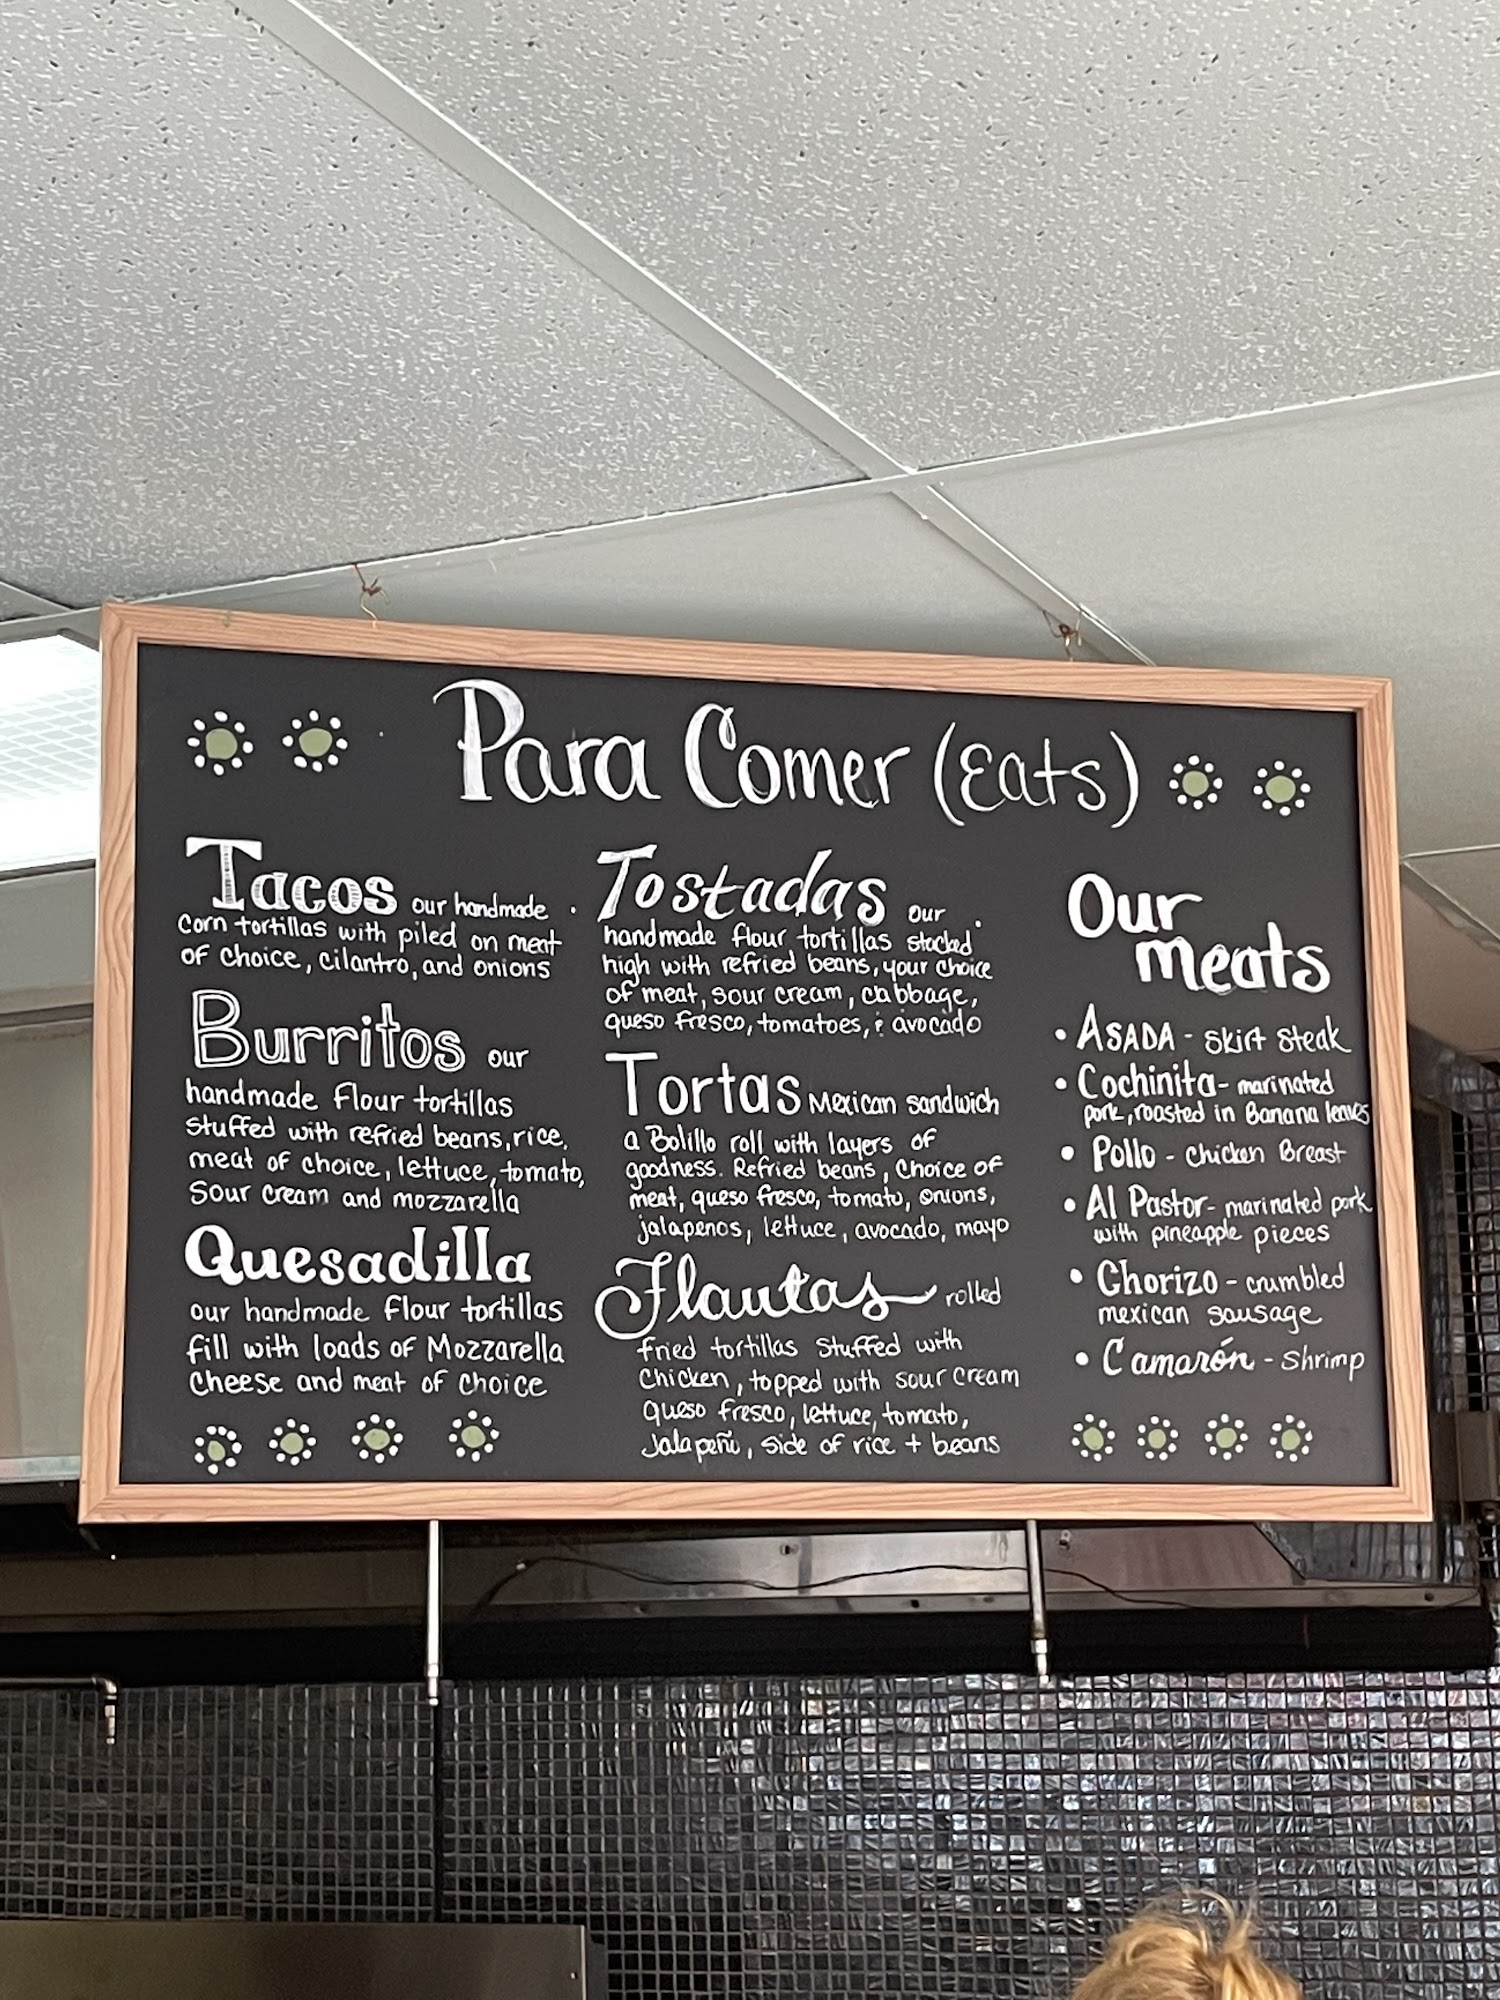 Para Comer (Eats)
Tacos our handmade
corn tortillas with piled on meat
of choice, cilantro, and onions
Burritos our
handmade flour tortillas
stuffed with refried beans, rice,
meat of choice, lettuce, tomato,
Sour cream and mozzarella
Quesadilla
our handmade flour tortillas
fill with loads of Mozzarella
cheese and meat of choice
Tostadas our
handmade flour tortillas stacked
high with refried beans, your choice
of meat, sour cream, cabbage,
queso fresco, tomatoes, & avocado
Tortas Mexican sandwich
a Bolillo roll with layers of
goodness. Refried beans, choice of
meat, queso fresco, tomato, onions,
jalapenos, lettuce, avocado, mayo
Flautas rolled
fried tortillas stuffed with
chicken, topped with sour cream
queso fresco, lettuce, tomato,
Jalapeño, side of rice + beans
Our
meats
• ASADA - skirt steak
• Cochinita - marinated
pork, roasted in Banana leaves
• Pollo - chicken Breast
• Al Pastor - marinated pork
with pineapple pieces
• Chorizo - crumbled
mexican sausage
• Camarón - Shrimp